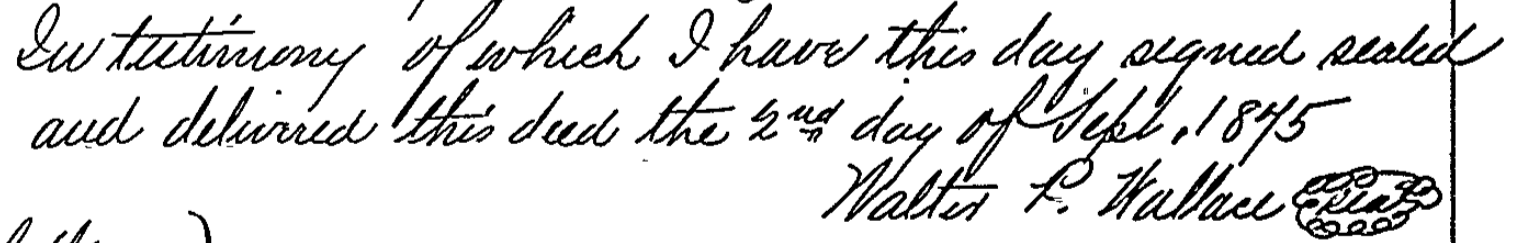 In testimony of which I have this day signed sealed
and delivered this deed the 2nd day of Sept. 1845
Walter P. Wallace Seal